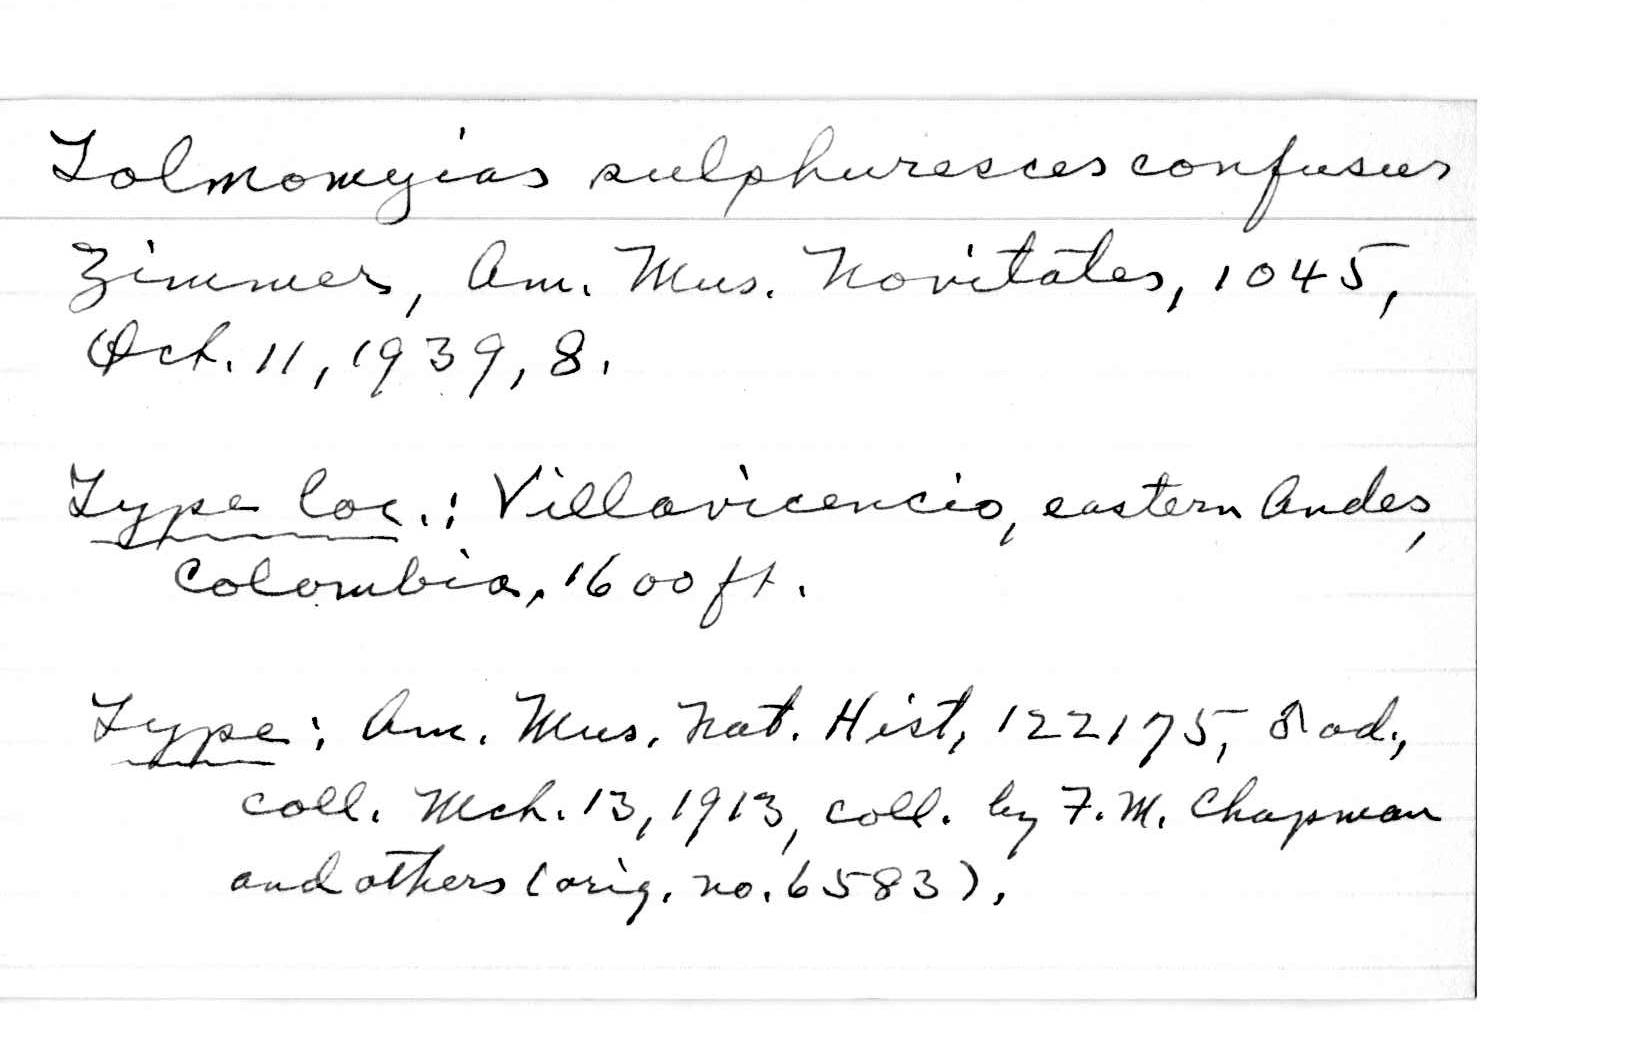 Tolmomyias sulphuresces confusus
Zimmer, Am. Mus. Novitates, 1045,
Oct. 11, 1939, 8.
Type loc.: Villavicencio, eastern Andes,
Colombia, 1600 ft.
Type: Am. Mus. Nat. Hist, 122175, ♂ ad.,
coll. Mch. 13, 1913, coll. by F. M. Chapman
and others (orig. no. 6583).